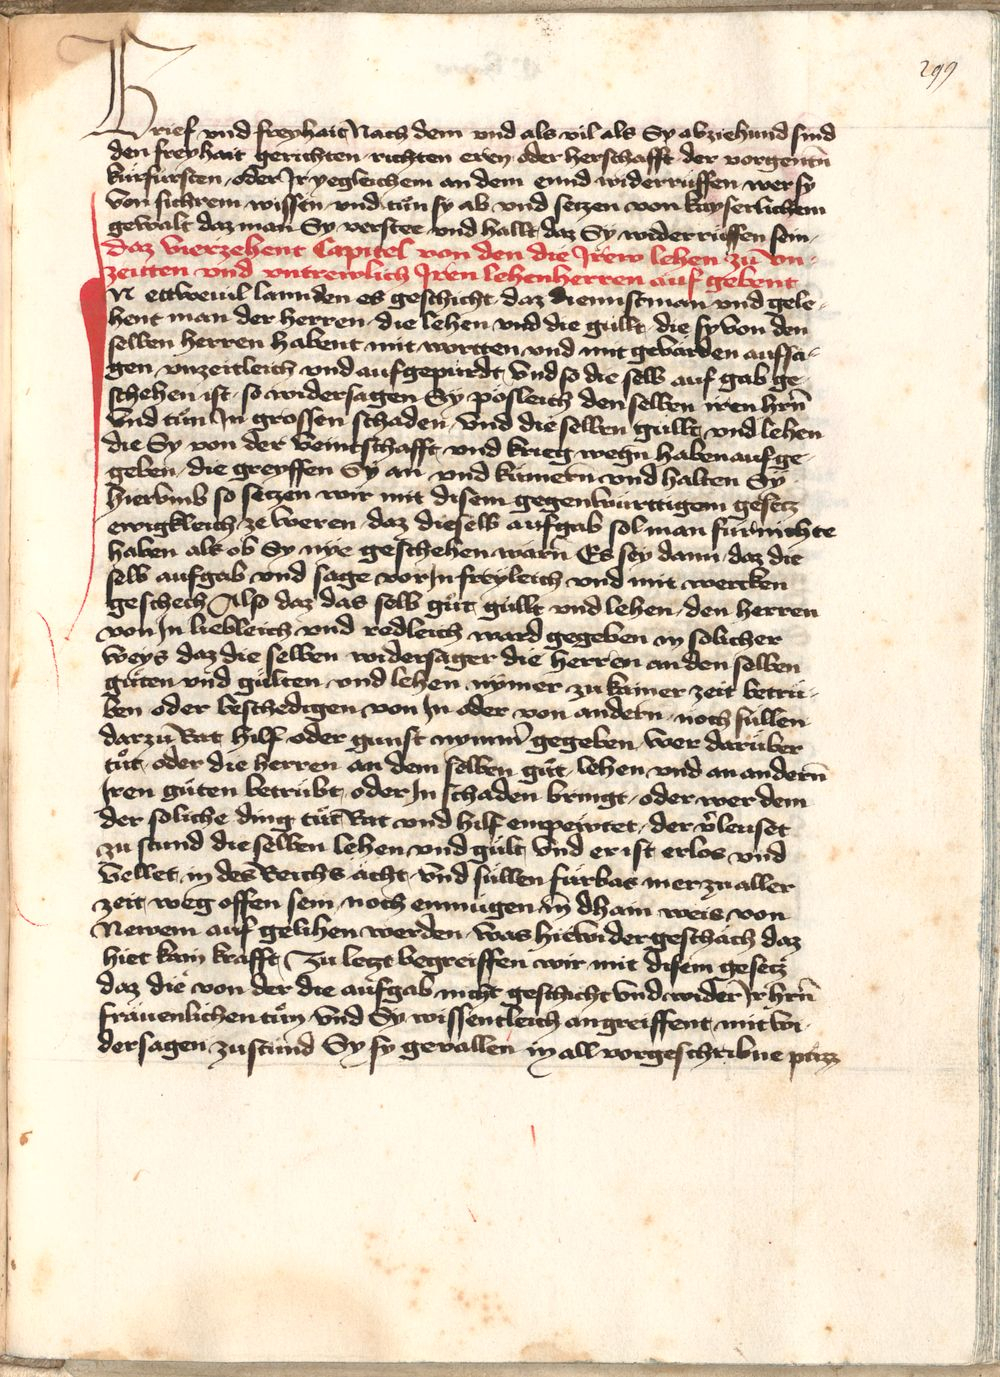 299
Brief vnd freyhait Nach dem vnd als vil als Sy abziehund sind
den freyhait gerichten richten eren oder herschafft der vorgentn̄
kurfürsten oder Jr yegleichem an dem ennd widerrüffen wer sy
von sichrem wissen vnd tůn sy ab vnd setzen von kayserlichem
gewalt daz man Sy verstee vnd hallt daz Sy widerrüffen sein
Daz vierzehent Capitel von den die Jrew lehen zů vn-
zeitten vnd vntrewlich Jren lehenherren auf gebent
N ettweuil lannden es geschicht daz diennstman vnd gele-
hent man der herren die lehen vnd die güllt die sy von den
selben herren habent mit wortten vnd mit gebärden aufsa-
gen vnzeitleich vnd aufgepürdt Vnd so die selb auf gab ge
schehen ist so widersagen Sy pösleich den selben iren hrn̄
Vnd tůn Jn grossen schaden Vnd die selben güllt vnd lehen
die Sy von der veintschafft vnd krieg wegn haben auf ge-
geben die greyffen Sy an vnd kümern vnd halten Sy
hiervmb so setzen wir mit disem gegenwürttigem gesetz
ewigkleich ze weren daz dieselb aufgab sol man für nichte
haben als ob Sy nye geschehen wärn Es sey dann daz die
selb aufgab vnd sage vor Jn freyleich vnd mit wercken
geschech Also daz das selb gůt güllt vnd lehen den herren
von Jn liebleich vnd redleich ward gegeben in solicher
weys daz die selben widersager die herren an den selben
güten vnd gülten vnd lehen nymer zu kainer zeit betrü-
ben oder beschedigen von Jn oder von andern noch süllen
darzů Rat hilf oder gunst nymm̄ gegeben wer darüber
tůt oder die herren an dem selben gůt lehen vnd an andern̄
Jren güten betrübt oder Jn schaden bringt oder wer dem
der soliche ding tůt Rat vnd hilf empewtet der v̄leuset
zu stund die selben lehen vnd gült Vnd er ist erlos vnd
vellet in des Reichs ächt vnd süllen fürbas mer zu aller
zeit weg offen sein noch enmügen in dhain weis von
Newem auf gelihen werden was hiewider geschäch daz
hiet kain krafft Zu letzt begreiffen wir mit disem gesetz
daz die von der die aufgab nicht geschicht vnd wider Jr hrn̄
fräuenlichen tůn vnd Sy wissentleich angreiffent mit wi-
dersagen zu stund Sy sy geuallen in all vorgeschribne